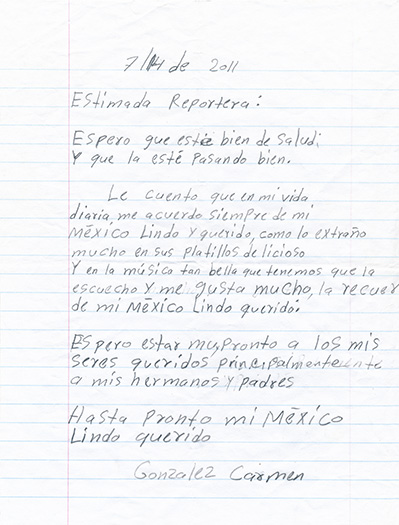 7/14 de 2011
Estimada Reportera:
Espero que esté bien de salud;
Y que la esté pasando bien.
Le cuento que en mi vida
diaria, me acuerdo siempre de mi
MÉXICO Lindo Y querido, como lo extraño
mucho en sus platillos delicioso
Y en la música tan bella que tenemos que la
escuecho Y me gusta mucho, la recuer
de mi MÉXICO Lindo querido.
Espero estar muy pronto a los mis
seres queridos principalmente
a mis hermanos y padres
Hasta pronto mi MÉXICO
Lindo querido
Gonzalez Carmen